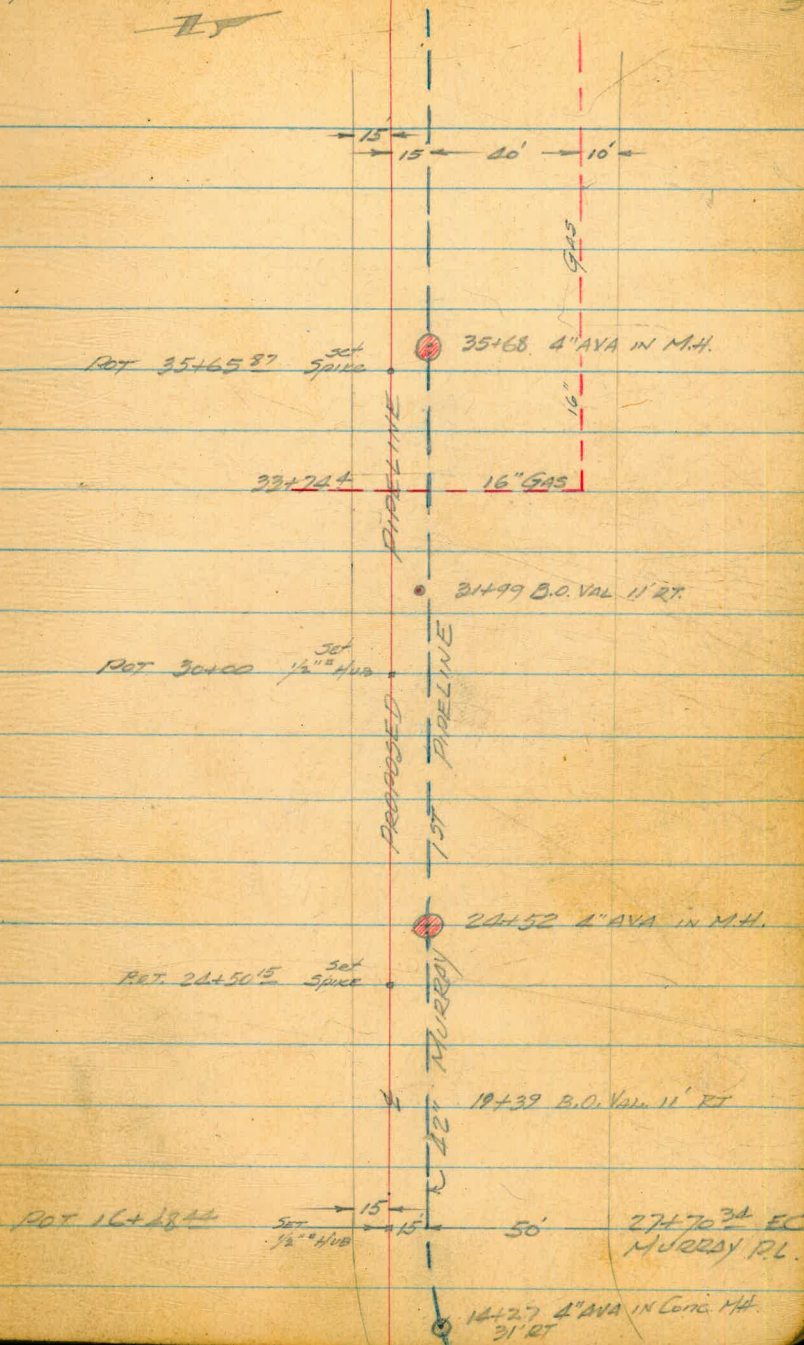 15'
15 40' 10'
GAS
35+68 4" AVA IN M.H.
POT 35+65 87 Set Spike
16"
33+74 4
16" GAS
PIPELINE
31+99 B.O. VAL 11' RT.
POT 30+00 Set 1/2" HUB
PROPOSED
1ST PIPELINE
24+52 4" AVA IN M.H.
P.O.T. 24+50 15 Set Spike
42" MURRAY
19+39 B.O. VAL. 11' RT
15'
POT 16+48 44 SET 1/2" HUB 15' 50' 27+70 34 EC
MURRAY P.L.
14+27 4" AVA IN CONC. MH.
31' RT